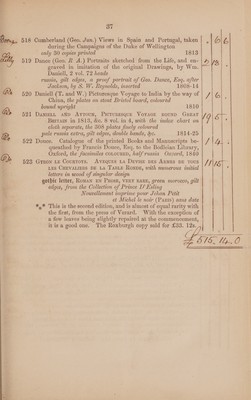 37
518 Cumberland (Geo. Jun.) Views in Spain and Portugal, taken
during the Campaigns of the Duke of Wellington
only 50 copies printed 1813
519 Dance (Geo. R A.) Portraits sketched from the Life, and en-
graved in imitation of the original Drawings, by Wm.
Daniell, 2 vol. 72 heads
russia, gilt edges, a proof portrait of Geo. Dance, Esq. after
Jackson, by S. W. Reynolds, inserted 1808-14
520 Daniell (T. and W.) Picturesque Voyage to India by the way of
China, the plates on stout Bristol board, coloured
bound upright 1810
521 Daniell and Ayton, Picturesque Voyage round Great
Britain in 1813, fo. 8 vol. in 4, with the index chart on
cloth separate, the 308 plates finely coloured
pale russia extra, gilt edges, double bands, &c. 1814-25
522 Douce. Catalogue of the printed Books and Manuscripts be-
queathed by Francis Douce, Esq. to the Bodleian Library,
Oxford, the facsimiles coloured, half russia Oxford, 1840
523 Gyron le Courtoys. Avecques la Devise des Armes de tous
les Chevaliers de la Table Ronde, with numerous initial
letters in wood of singular design
gothic letter, Roman en Prose, very rare, green morocco, gilt
edges, from the Collection of Prince D'Esling
Nouvellement imprime pour Jehan Petit
et Michel le noir (Paris) sans date
*** This is the second edition, and is almost of equal rarity with
the first, from the press of Verard. With the exception of
a few leaves being slightly repaired at the commencement,
it is a good one. The Roxburgh copy sold for £33. 12s.